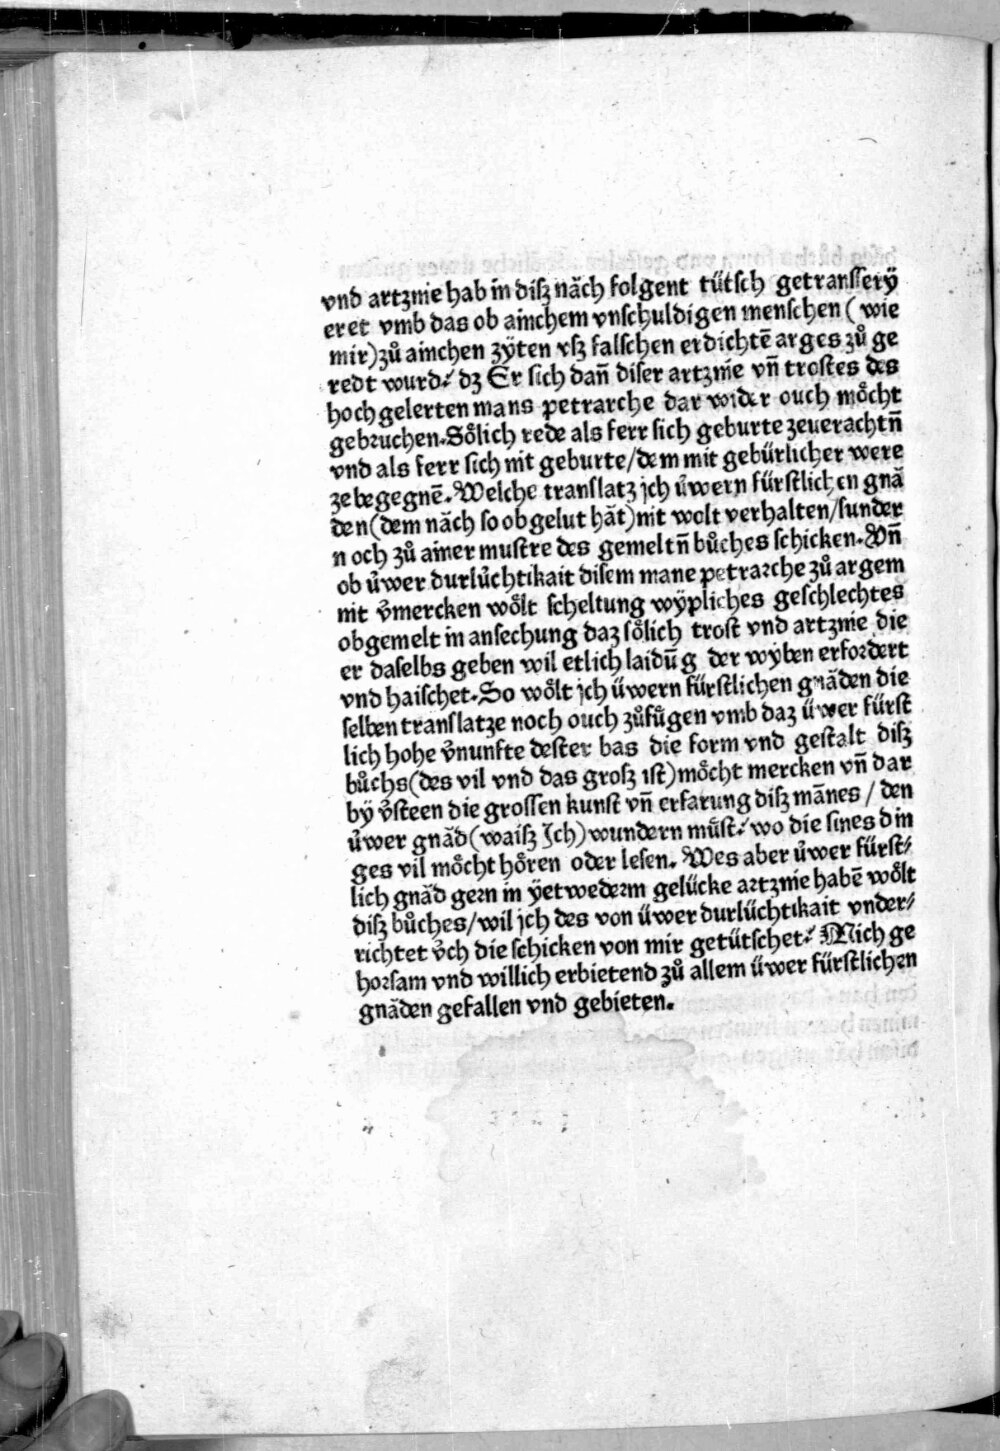 vnd artznie hab in disz näch folgent tütsch getransferÿ
eret vmb das ob ainchem vnschuldigen menschen ( wie
mir)zů ainchen zÿten vsz falschen erdichtē arges zů ge
redt wurd/ dz Er sich dan̄ diser artznie vn̄ trostes des
hochgelerten mans petrarche dar wider ouch mo̊cht
gebruchen.So̊lich rede als ferr sich geburte zeuerachtn̄
vnd als ferr sich nit geburte/dem mit gebürlicher were
zebegegnē.Welche translatz jch u̇wern fürstlichen gnä
den(dem näch so obgelut hät)nit wolt verhalten/sunder
n och zů ainer mustre des gemeltn̄ bůches schicken.Vn̄
ob u̇wer durlu̇chtikait disem mane petrarche zů argem
nit v̄mercken wo̊lt scheltung wÿpliches geschlechtes
obgemelt in ansechung daz so̊lich trost vnd artznie die
er daselbs geben wil etlich laidūg der wyben erfordert
vnd haischet.So wo̊lt jch üwern fürstlichen gnäden die
selben translatze noch ouch zůfůgen vmb daz üwer fürst
lich hohe v̄nunfte dester bas die form vnd gestalt disz
bůchs(des vil vnd das grosz ist)mo̊cht mercken vn̄ dar
bÿ v̄steen die grossen kunst vn̄ erfarung disz mānes / den
u̇wer gnäd(waisz Jch)wundern mu̇st/ wo die sines din
ges vil mo̊cht ho̊ren oder lesen. Wes aber u̇wer fürst/
lich gnäd gern in ÿetwederm gelücke artznie habē wo̊lt
disz bůches/wil jch des von üwer durlüchtikait vnder/
richtet v̇ch die schicken von mir getütschet/ Mich ge
horsam vnd willich erbietend zů allem üwer fürstlichen
gnäden gefallen vnd gebieten.